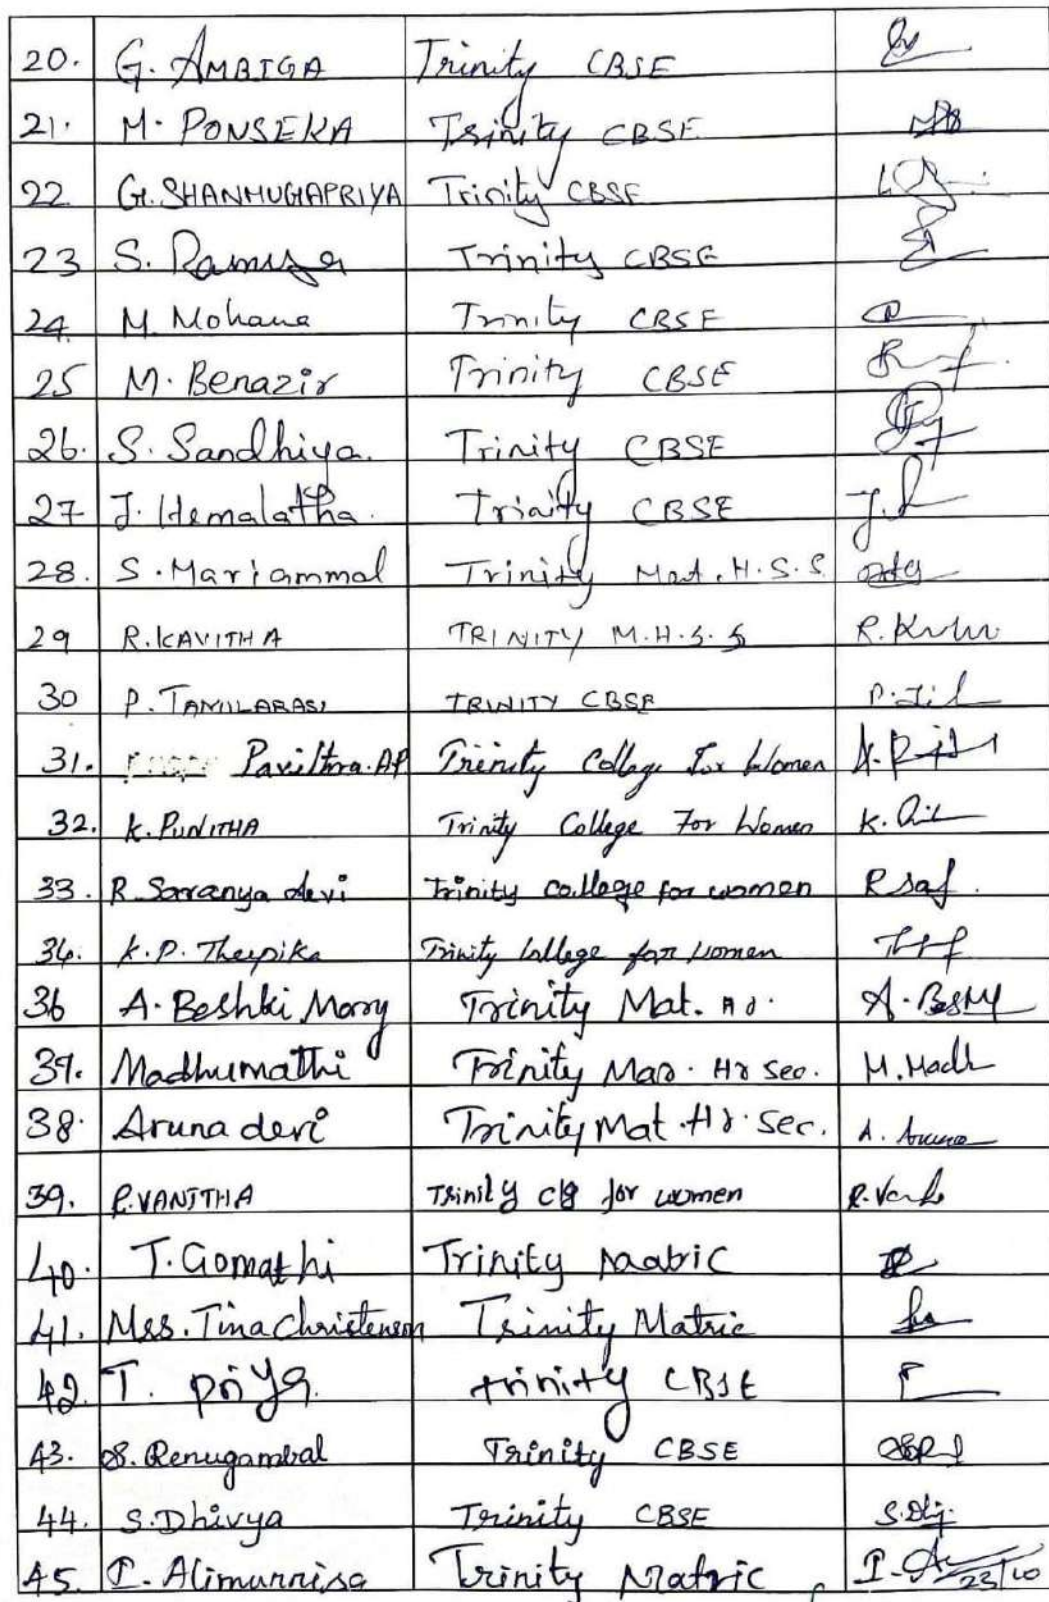 20. G. AMBIGA Trinity CBSE
21. M. PONSEKA Trinity CBSE
22 G. SHANMUGAPRIYA Trinity CBSE
23 S. Trinity CBSE
24. M. Mohana Trinity CBSE
25 M. Benazir Trinity CBSE
26. S. Sandhiya. Trinity CBSE
27 J. Hemalatha. Trinity CBSE
28. S. Mariammal Trinity Mat. H.S.S
29 R. KAVITHA TRINITY M.H.S.S
30 P. TAMILARASI TRINITY CBSE
31. Pavithra. AP Trinity College For Women
32. K. PUNITHA Trinity College For Women K.
33. R. Saranya devi Trinity college for women R
34. K.P. Theepika Trinity College for women
36 A. Beshki Mary Trinity Mat. A.
37. Madhumathi Trinity Mat. Hr Sec. M. Madh
38. Aruna devi Trinity Mat. Hr. Sec. A. Aruna
39. R. VANITHA Trinity clg for women R.
40. T. Gomathi Trinity Matric
41. Mrs. Tina Christenson Trinity Matric
42. T. Priya. Trinity CBSE
43. S. Renugambal Trinity CBSE
44. S. Dhivya Trinity CBSE
45. I. Alimunnisa Trinity Matric I. 23/10